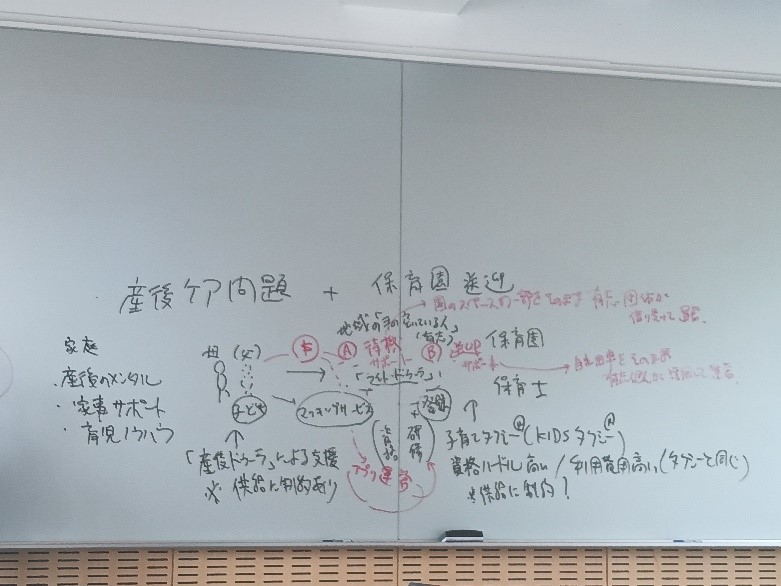 産後ケア問題 + 保育園送迎
園のスペースの一部をそのまま 有志団体が
借り受けて運営
地域の「手の空いている人」
(有志)
家庭
・産後のメンタル
・家事サポート
・育児ノウハウ
母 (父)
子ども
¥
Ⓐ 待機 サポート
Ⓑ 送UP サポート
「ライト・ドゥーラ」
マッチングサービス
+ 登録
(資格 研修)
アプリ運営
保育園
保育士
有志個人が
「産後ドゥーラ」による支援
※ 供給に制約あり
子育てタクシー® (KIDSタクシー®)
資格ハードル高い / 利用費用高い (タクシーと同じ)
※供給に制約?